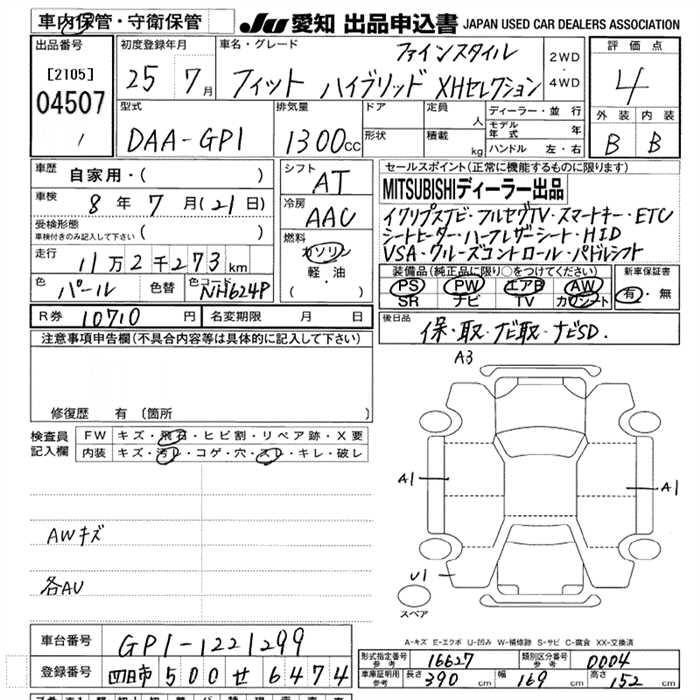 車内保管・守衛保管
JU 愛知 出品申込書 JAPAN USED CAR DEALERS ASSOCIATION
出品番号
[2105]
04507
1
初度登録年月
25 7月
車名・グレード
ファインスタイル
フィット ハイブリッド XHセレクション
2WD
・
4WD
評価点
4
外装 内装
B B
型式
DAA-GP1
排気量
1300cc
ドア
形状
定員
人
積載
kg
ディーラー・並行
モデル年式 年
ハンドル 左・右
車歴
自家用・( )
車検
8年7月(21日)
受検形態
車検付きのみ記入して下さい ( )
走行
11万2千273km
色
パール
色替
色コード
NH624P
シフト
AT
冷房
AAC
燃料
ガソリン
軽・油
( )
セールスポイント(正常に機能するものに限ります)
MITSUBISHIディーラー出品
イクリプスナビ・フルセグTV・スマートキー・ETC
シートヒーター・ハーフレザーシート・HID
VSA・クルーズコントロール・パドルシフト
装備品(純正品に限り○をつけてください)
PS PW エアB AW
SR ナビ TV カワシート
新車保証書
有・無
R券 10710円
名変期限 月 日
後日品
保・取・ナビ取・ナビSD.
注意事項申告欄(不具合内容等は具体的に記入して下さい)
修復歴 有 〔箇所
検査員
記入欄
FW キズ・飛石・ヒビ割・リペア跡・X要
内装 キズ・汚レ・コゲ・穴・スレ・キレ・破レ
AWキズ
各AU
A3
A1
A1
U1
スペア
A-キズ E-エクボ U-凹み W-補修跡 S-サビ C-腐食 XX-交換済
車台番号 GP1-1221299
登録番号 四日市 500 せ 6474
形式指定番号 参考 16627
類別区分番号 参考 0004
車庫証明用 参考 長さ 390cm 幅 169cm 高さ 152cm